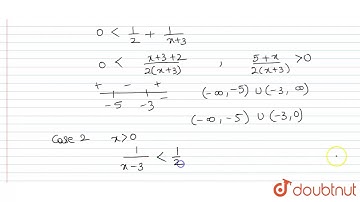 0 < 1/2 + 1/(x+3)
0 < (x+3+2)/(2(x+3)) , (5+x)/(2(x+3)) >0
+ - +
-5 -3 (-∞,-5) ∪ (-3, ∞)
(-∞,-5) ∪ (-3,0)
Case 2 x>0
1/(x-3) < 1/2
doubtnut